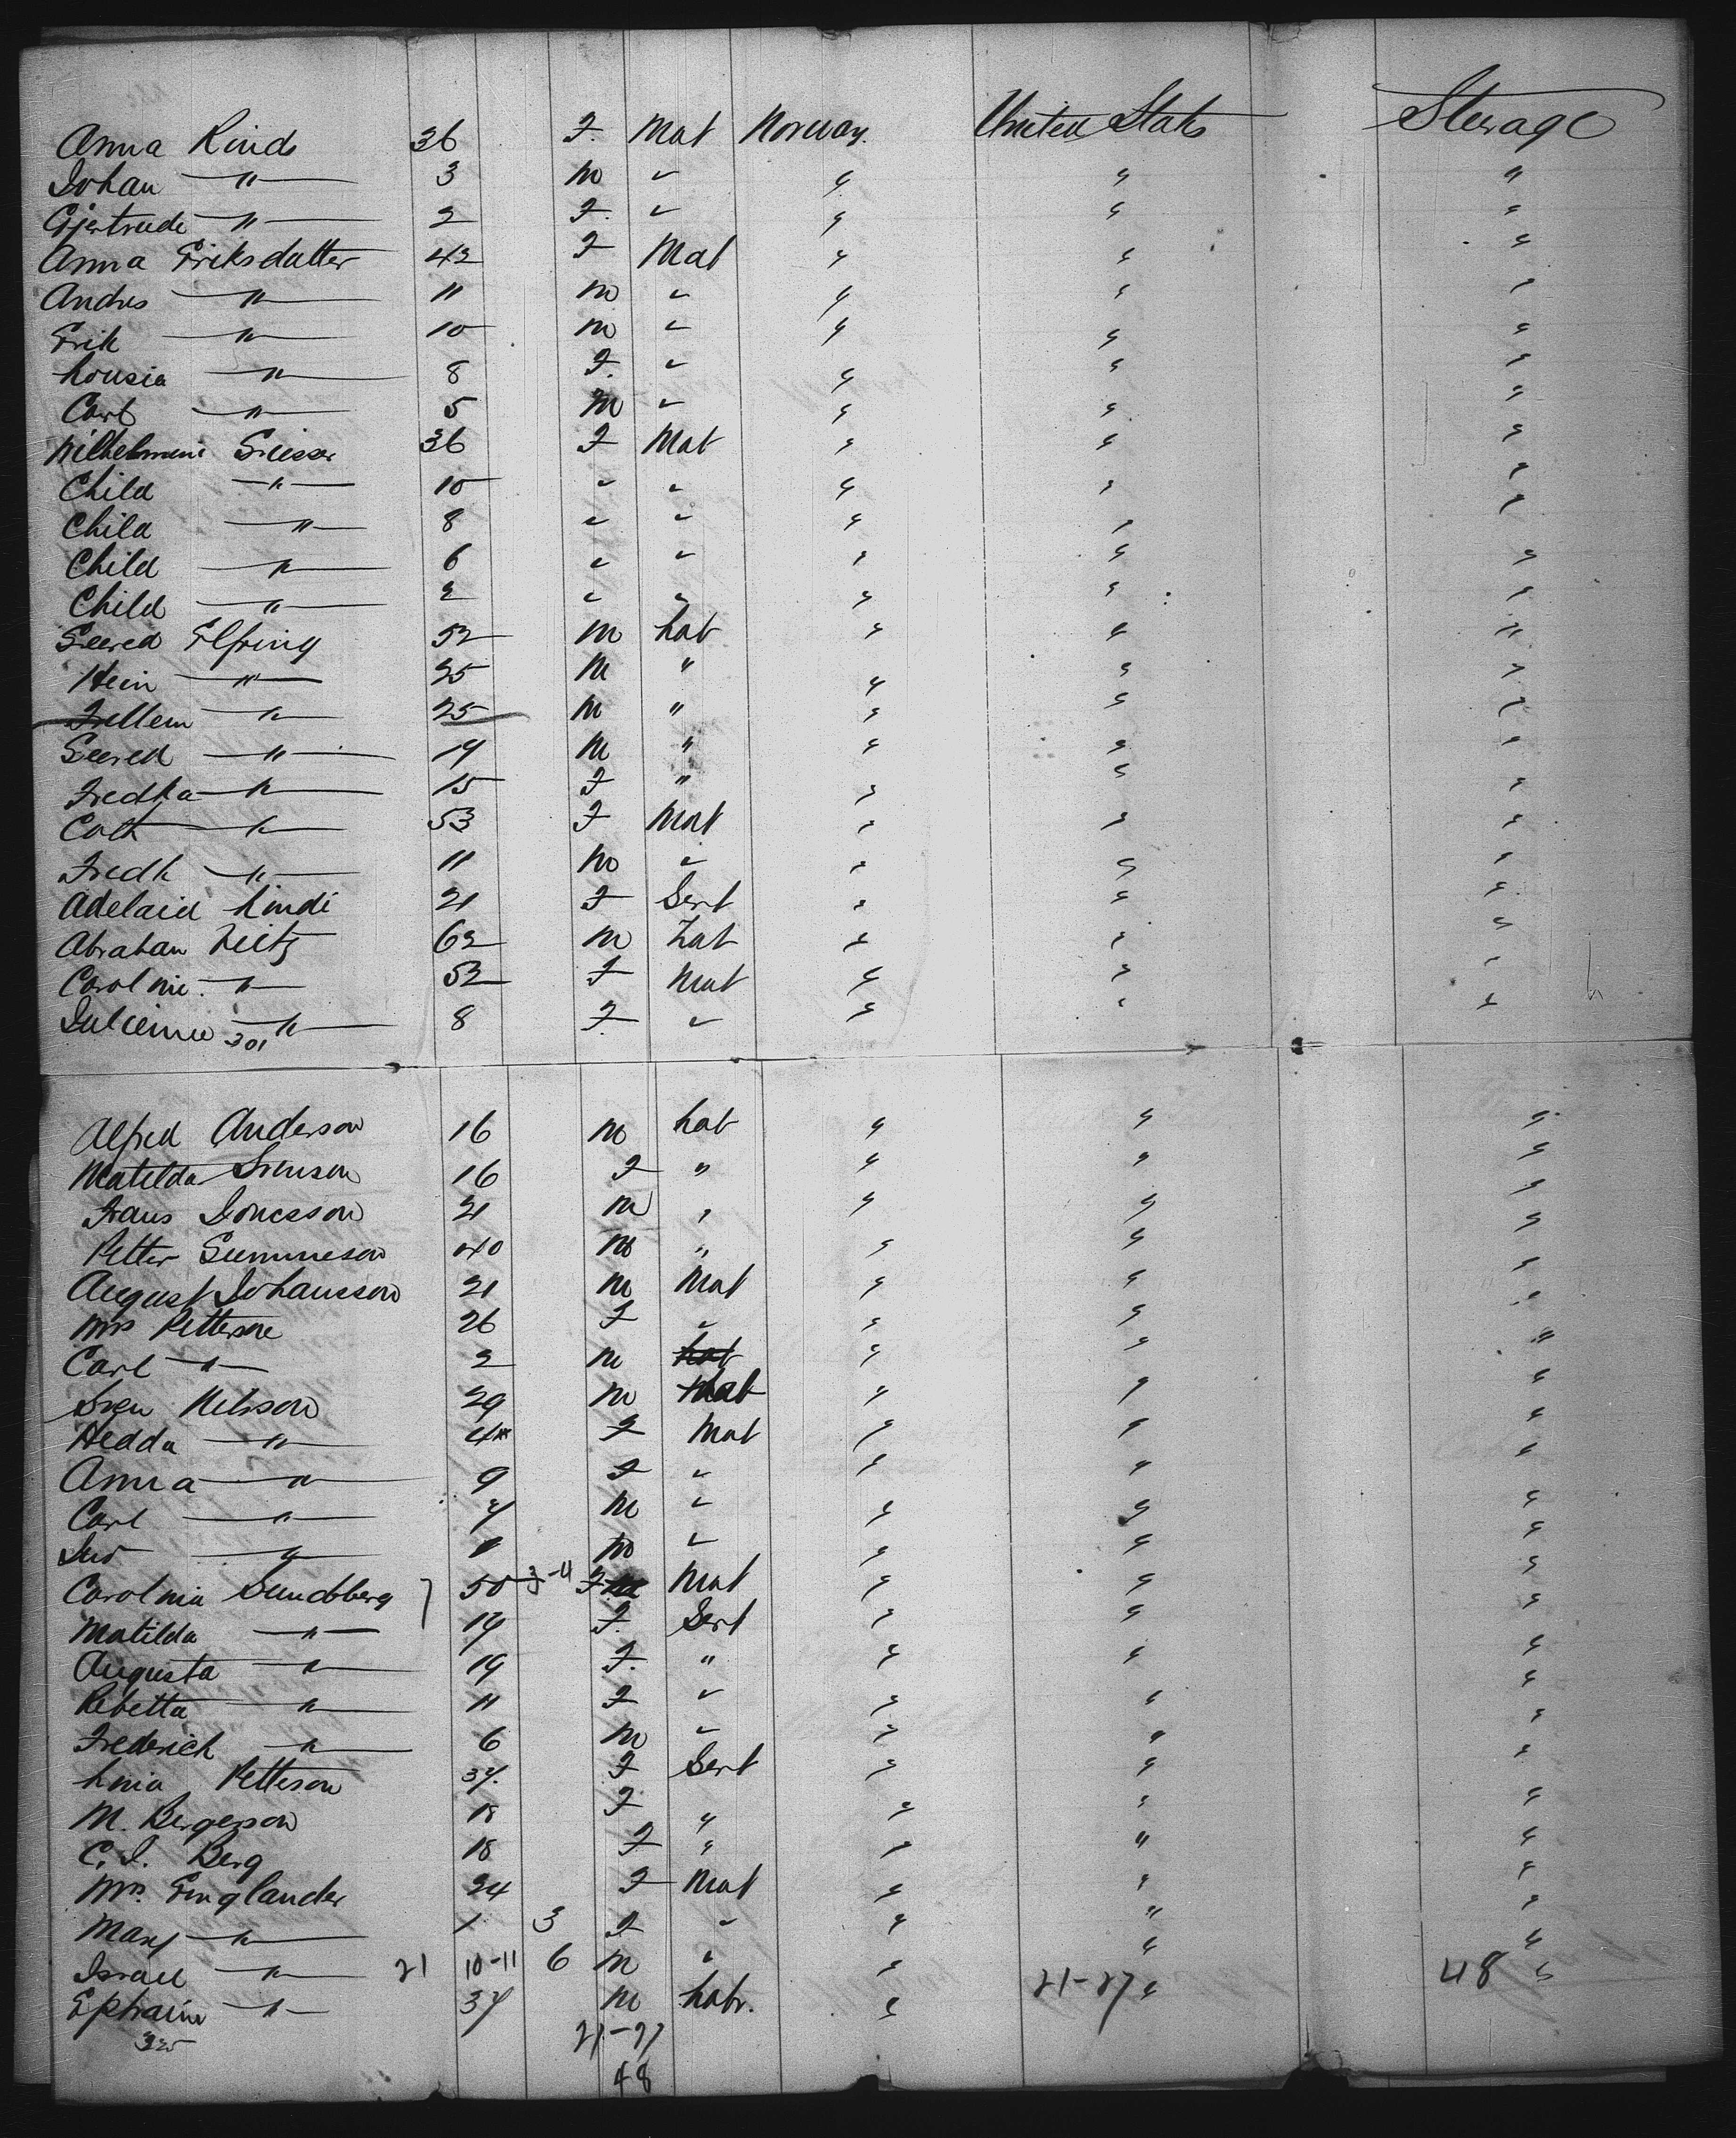 Anna Rinds 36 F. Mat Norway. United States Sterage
Johan " 3 m " " " "
Gjertrude " 2 F. " " " "
Anna Eriksdatter 42 F Mat " " "
Andres " 11 m " " " "
Erik " 10 m " " " "
Lousia " 8 F. " " " "
Carl " 5 m " " " "
Wilhelmine 36 F Mat " " "
Child " 10 " " " " "
Child " 8 " " " " "
Child " 6 " " " " "
Child " 2 " " " " "
Geered Elfring 52 m Lab " " "
Hein " 25 m " " " "
" 25 m " " " "
Geered " 19 m " " " "
Fredka " 15 F " " " "
Cath " 53 F Mat " " "
Fredk " 11 m " " " "
Adelaid Lindi 21 F Sert " " "
Abraham 62 m Lab " " "
Caroline " 52 F Mat " " "
" 8 F " " " "
301
Alfred Anderson 16 m Lab " " "
Matilda Svenson 16 F " " " "
Frans Jonesson 21 m " " " "
Petter 40 m " " " "
August Johansson 21 m Mat " " "
Mrs Petterson 26 F " " " "
Carl " 2 m Lab " " "
Sven Nelsson 29 m Mat " " "
Hedda " F Mat " " "
Anna " 9 F " " " "
Carl " 7 m " " " "
" m " " " "
Carolina Sundberg 50 3-11 F Mat " " "
Matilda " 17 F. Sert " " "
Augusta " 19 F. " " " "
Rebetta " 11 F " " " "
Frederich " 6 m " " " "
Petterson 37. F Sert " " "
M. Bergerson 18 F " " " "
C. J. Berg 18 F " " " "
Mrs. Englander 24 F Mat " " "
Mary " 1 3 F " " " "
Israel " 21 10-11 6 m " " " "
Ephraim " 37 m Labr. " 21-27 " 48 "
325 21-27
48